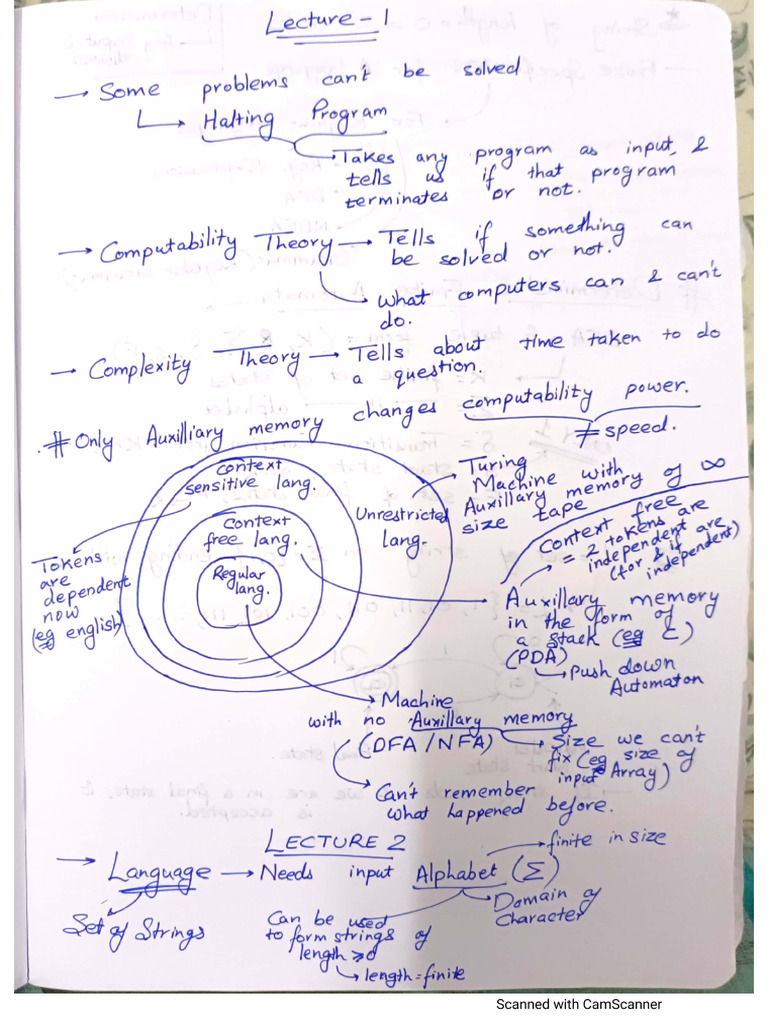 Lecture - 1
→ Some problems can't be solved
↳ Halting Program
→ Takes any program as input, &
tells us if that program
terminates or not.
→ Computability Theory → Tells if something can
be solved or not.
What computers can & can't
do.
→ Complexity Theory → Tells about time taken to do
a question.
# Only Auxilliary memory changes computability power.
≠ speed.
Context
sensitive lang.
Context
free lang.
Regular
lang.
Unrestricted
lang.
→ Turing
Machine with
Auxillary memory of ∞
size tape
Context free
= 2 tokens are
independent are
(for & if
independent)
Tokens
are
dependent
now
(eg english)
→ Auxillary memory
in the form of
a stack (eg C)
(PDA)
→ Push down
Automaton
→ Machine
with no Auxillary memory
(DFA/NFA) → Size we can't
fix (eg size of
input Array)
→ Can't remember
what happened before.
LECTURE 2
→ Language → Needs input Alphabet (Σ)
→ finite in size
→ Domain of
Character
Set of Strings
Can be used
to form strings of
length ≥0
→ length = finite
Scanned with CamScanner